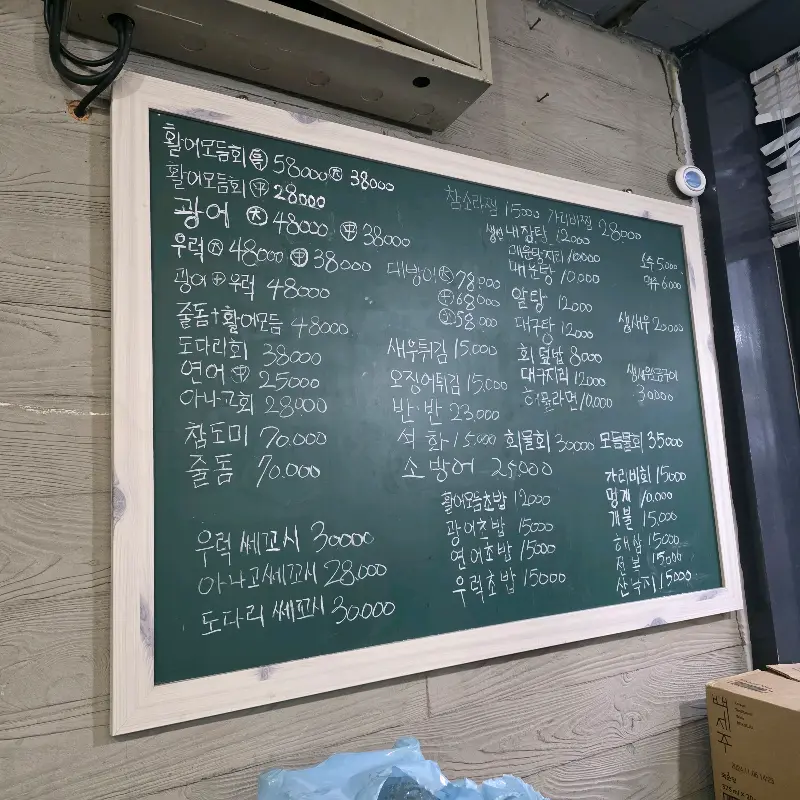 활어모듬회 ㊕ 58000 ㊅ 38000
활어모듬회 ㊥ 28000
광어 ㊅ 48000 ㊥ 38000
우럭 ㊅ 48000 ㊥ 38000
광어 ㊉ 우럭 48000
줄돔+활어모듬 48000
도다리회 38000
연어 ㊥ 25000
아나고회 28000
참도미 70.000
줄돔 70.000
우럭 쎄꼬시 30000
아나고쎄꼬시 28.000
도다리 쎄꼬시 30.000
참소라찜 15000 가리비찜 28000
대방어 ㊅ 78.000
㊥ 68000
㊛ 58.000
새우튀김 15.000
오징어튀김 15.000
반·반 23.000
석화 15000 회물회 30000 모듬물회 35000
소방어 25.000
활어모듬초밥 12000
광어초밥 15000
연어초밥 15000
우럭초밥 15000
생선내장탕 12000
매운탕지리 10.000
매운탕 10.000
알탕 12000
대구탕 12000
회덮밥 8000
대구지리 12000
라면 10.000
소주 5.000
맥주 6.000
생새우 20000
생새우소금구이
30000
가리비회 15000
멍게 10.000
개불 15.000
해삼 15000
전복 15000
산낙지 15000
백세주